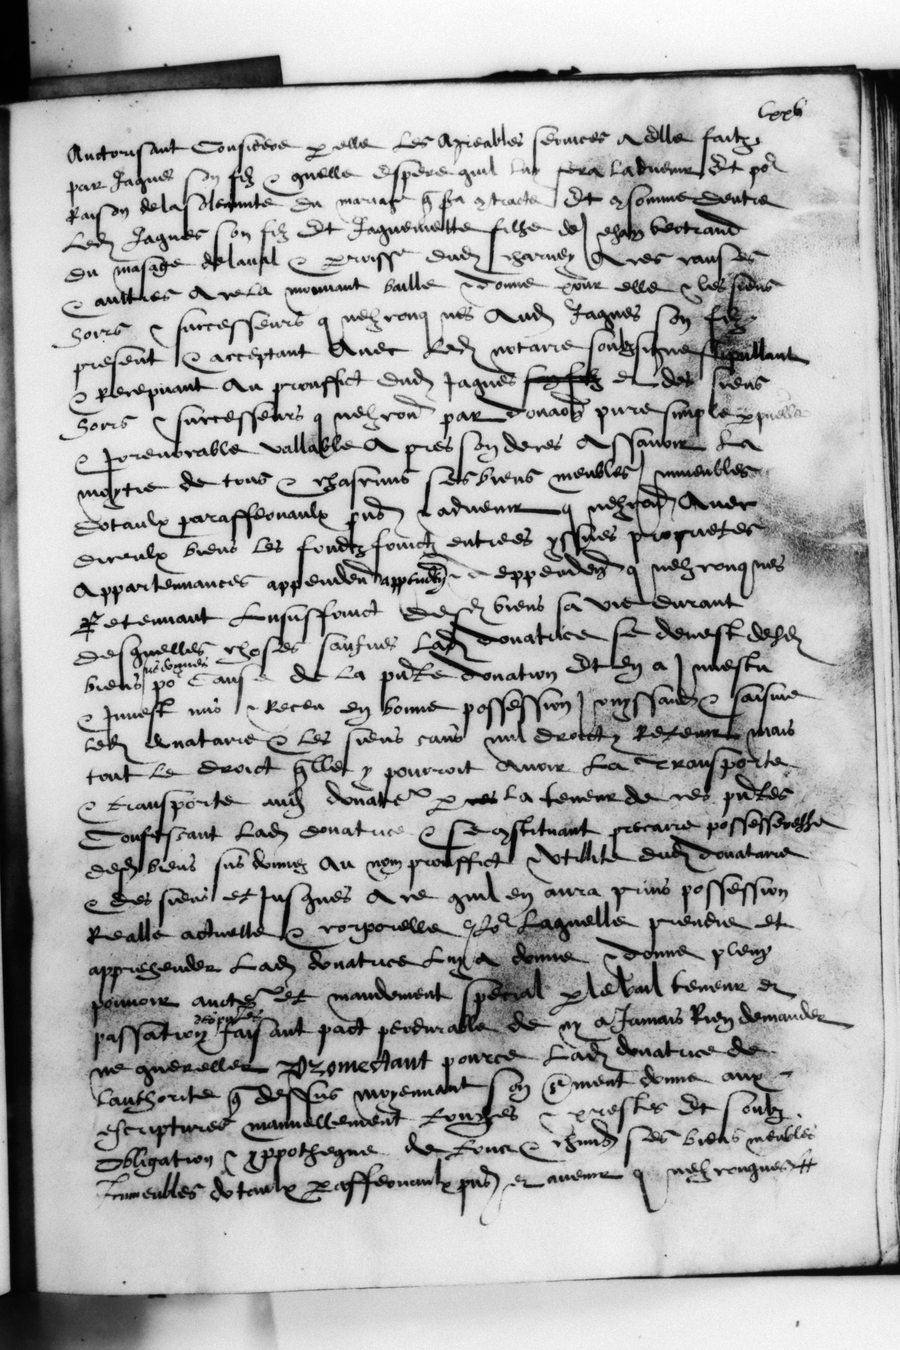 lxxv
Auctorisant Considere p elle les Agreables services A elle faitz
par Jaques son filz & quelle espere quil luy fera ladvenir Et por
Raison de la solempnite du mariage q sera contracte Et consomme dentre
Led Jaques son filz Et Jaquemette filhe de Jehan bertrand
du masage de laval & parroisse dud A ces causes
& aultres A ce la mouvant baille & donne pour elle & les siens
hoirs & successeurs quelzconques Aud Jaques son filz
present & acceptant Avec Led notaire soubzsigne stipullant
& Recepvant Au prouffict dud Jaques et des siens
hoirs & successeurs quelzconq par donaon pure simple
& Jrrevocable vallable A Assavoir La
moytie de tous & chascuns ses biens meubles Jmmeubles
dotaulx paraffernaulx pns & advenir quelzconq Avec
diceulx biens les fondz foinctz entrees yssues proprietes
Appartenances appenden & deppenden quelzconques
Retenant Lusuffruict desd biens sa vie durant
desquelles choses saufves Lad donatrice se devest desd
biens sus donnes po Cause de la pnte donation Et en a Jnvestu
& Jnvest mis & Receu en bonne possession Joyssance & saisine
led donataire & les siens sans nul droict y Retenir mais
tout le droict quelle y pourroit Avoir La Transporte
& transporte aud donatre p la teneur de ces pntes
Confessant Lad donatrice & se constituant precaire possesseresse
desd biens sus donnes Au nom prouffict & utillite dud donataire
& des siens et Jusques A ce quil en aura prins possession
Realle actuelle & corporelle Por Laquelle prendre et
apprehender Lad donatrice Luy A donne & donne pleny
pouvoir aucte et mandement special p le bail teneur et
passation Faisant pact perdurable de ny a Jamais Rien demander
ne quereller Promectant pource Lad donatrice de
lauthorite q dessus moyennant son serment donne aux
escriptures manuellement touchees & prestes Et soubz
obligation & yppotheque de touts & chuns ses biens meubles
Jmmeubles dotaulx paraffernaulx pns et avenir quelzconques